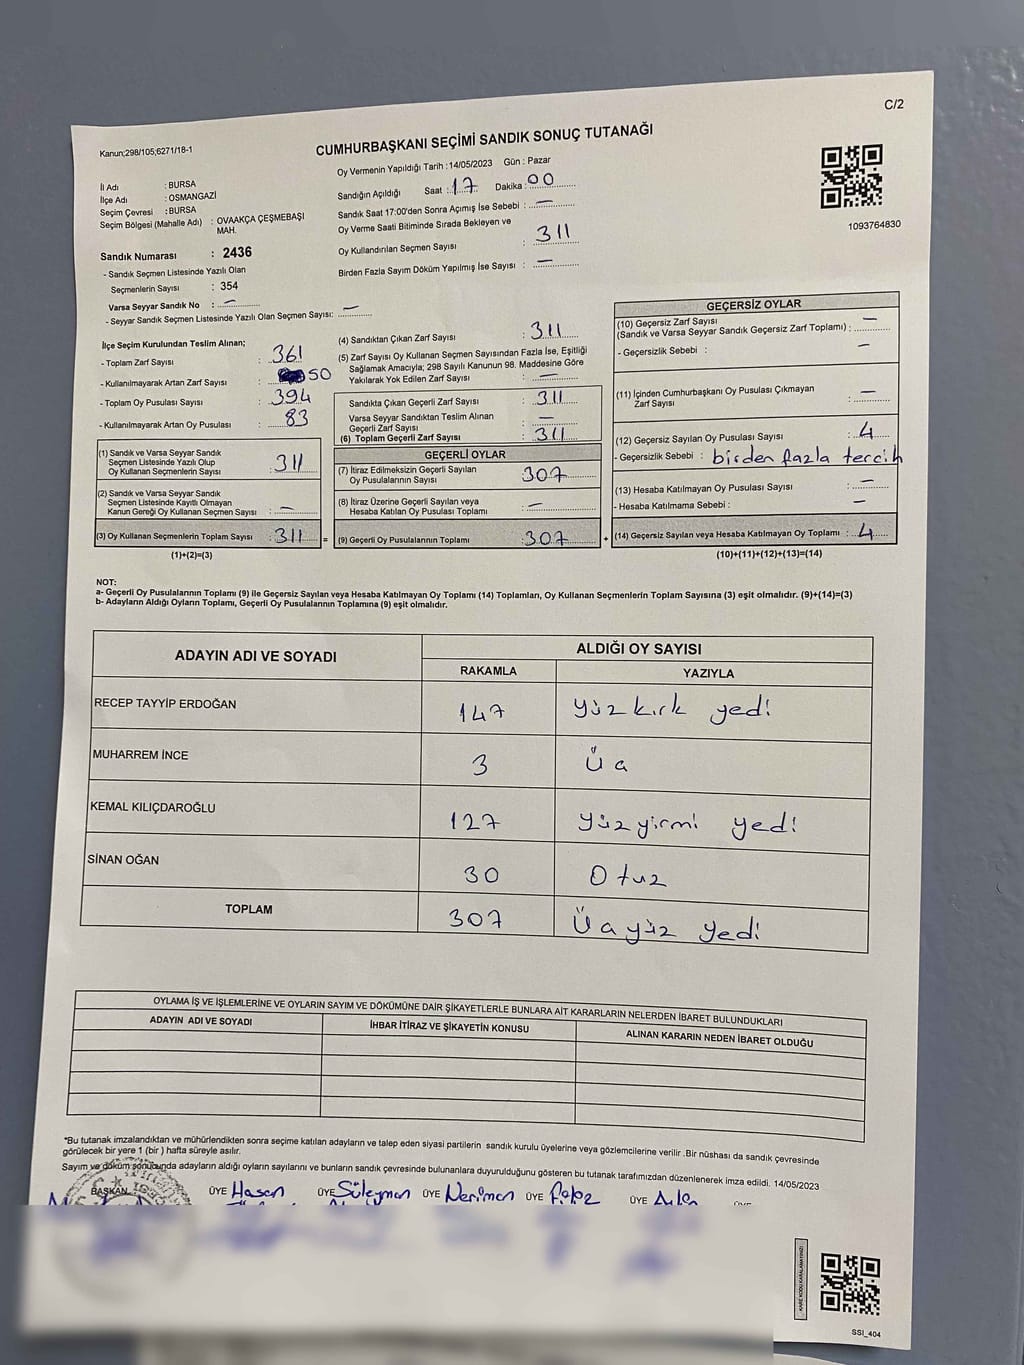 C/2
Kanun;298/105;6271/18-1
CUMHURBAŞKANI SEÇİMİ SANDIK SONUÇ TUTANAĞI
İl Adı : BURSA
İlçe Adı : OSMANGAZİ
Seçim Çevresi : BURSA
Seçim Bölgesi (Mahalle Adı) : OVAAKÇA ÇEŞMEBAŞI
MAH.
Sandık Numarası : 2436
- Sandık Seçmen Listesinde Yazılı Olan
Seçmenlerin Sayısı : 354
Varsa Seyyar Sandık No : —
- Seyyar Sandık Seçmen Listesinde Yazılı Olan Seçmen Sayısı: —
Oy Vermenin Yapıldığı Tarih :14/05/2023 Gün : Pazar
Sandığın Açıldığı Saat : 17 Dakika : 00
Sandık Saat 17:00'den Sonra Açımış İse Sebebi : —
Oy Verme Saati Bitiminde Sırada Bekleyen ve
Oy Kullandırılan Seçmen Sayısı : 311
Birden Fazla Sayım Döküm Yapılmış İse Sayısı : —
1093764830
İlçe Seçim Kurulundan Teslim Alınan;
- Toplam Zarf Sayısı : 361
- Kullanılmayarak Artan Zarf Sayısı : 50
- Toplam Oy Pusulası Sayısı : 394
- Kullanılmayarak Artan Oy Pusulası : 83
(1) Sandık ve Varsa Seyyar Sandık
Seçmen Listesinde Yazılı Olup
Oy Kullanan Seçmenlerin Sayısı : 311
(2) Sandık ve Varsa Seyyar Sandık
Seçmen Listesinde Kayıtlı Olmayan
Kanun Gereği Oy Kullanan Seçmen Sayısı : —
(3) Oy Kullanan Seçmenlerin Toplam Sayısı : 311 =
(1)+(2)=(3)
(4) Sandıktan Çıkan Zarf Sayısı : 311
(5) Zarf Sayısı Oy Kullanan Seçmen Sayısından Fazla İse, Eşitliği
Sağlamak Amacıyla; 298 Sayılı Kanunun 98. Maddesine Göre
Yakılarak Yok Edilen Zarf Sayısı : —
Sandıkta Çıkan Geçerli Zarf Sayısı : 311
Varsa Seyyar Sandıktan Teslim Alınan
Geçerli Zarf Sayısı : —
(6) Toplam Geçerli Zarf Sayısı : 311
GEÇERLİ OYLAR
(7) İtiraz Edilmeksizin Geçerli Sayılan
Oy Pusulalarının Sayısı : 307
(8) İtiraz Üzerine Geçerli Sayılan veya
Hesaba Katılan Oy Pusulası Toplamı : —
(9) Geçerli Oy Pusulalarının Toplamı : 307 +
GEÇERSİZ OYLAR
(10) Geçersiz Zarf Sayısı
(Sandık ve Varsa Seyyar Sandık Geçersiz Zarf Toplamı) : —
- Geçersizlik Sebebi : —
(11) İçinden Cumhurbaşkanı Oy Pusulası Çıkmayan
Zarf Sayısı : —
(12) Geçersiz Sayılan Oy Pusulası Sayısı : 4
- Geçersizlik Sebebi : birden fazla tercih
(13) Hesaba Katılmayan Oy Pusulası Sayısı : —
- Hesaba Katılmama Sebebi : —
(14) Geçersiz Sayılan veya Hesaba Katılmayan Oy Toplamı : 4
(10)+(11)+(12)+(13)=(14)
NOT:
a- Geçerli Oy Pusulalarının Toplamı (9) ile Geçersiz Sayılan veya Hesaba Katılmayan Oy Toplamı (14) Toplamları, Oy Kullanan Seçmenlerin Toplam Sayısına (3) eşit olmalıdır. (9)+(14)=(3)
b- Adayların Aldığı Oyların Toplamı, Geçerli Oy Pusulalarının Toplamına (9) eşit olmalıdır.
ADAYIN ADI VE SOYADI ALDIĞI OY SAYISI
RAKAMLA YAZIYLA
RECEP TAYYİP ERDOĞAN 147 yüz kırk yedi
MUHARREM İNCE 3 Üç
KEMAL KILIÇDAROĞLU 127 yüz yirmi yedi
SİNAN OĞAN 30 Otuz
TOPLAM 307 Üçyüz yedi
OYLAMA İŞ VE İŞLEMLERİNE VE OYLARIN SAYIM VE DÖKÜMÜNE DAİR ŞİKAYETLERLE BUNLARA AİT KARARLARIN NELERDEN İBARET BULUNDUKLARI
ADAYIN ADI VE SOYADI İHBAR İTİRAZ VE ŞİKAYETİN KONUSU ALINAN KARARIN NEDEN İBARET OLDUĞU
*Bu tutanak imzalandıktan ve mühürlendikten sonra seçime katılan adayların ve talep eden siyasi partilerin sandık kurulu üyelerine veya gözlemcilerine verilir .Bir nüshası da sandık çevresinde
görülecek bir yere 1 (bir ) hafta süreyle asılır.
Sayım ve döküm sonucunda adayların aldığı oyların sayılarını ve bunların sandık çevresinde bulunanlara duyurulduğunu gösteren bu tutanak tarafımızdan düzenlenerek imza edildi. 14/05/2023
BAŞKAN ÜYE Hasan ÜYE Süleyman ÜYE Neriman ÜYE ÜYE
KARE KODU KARALAMAYINIZ!
SSI_404